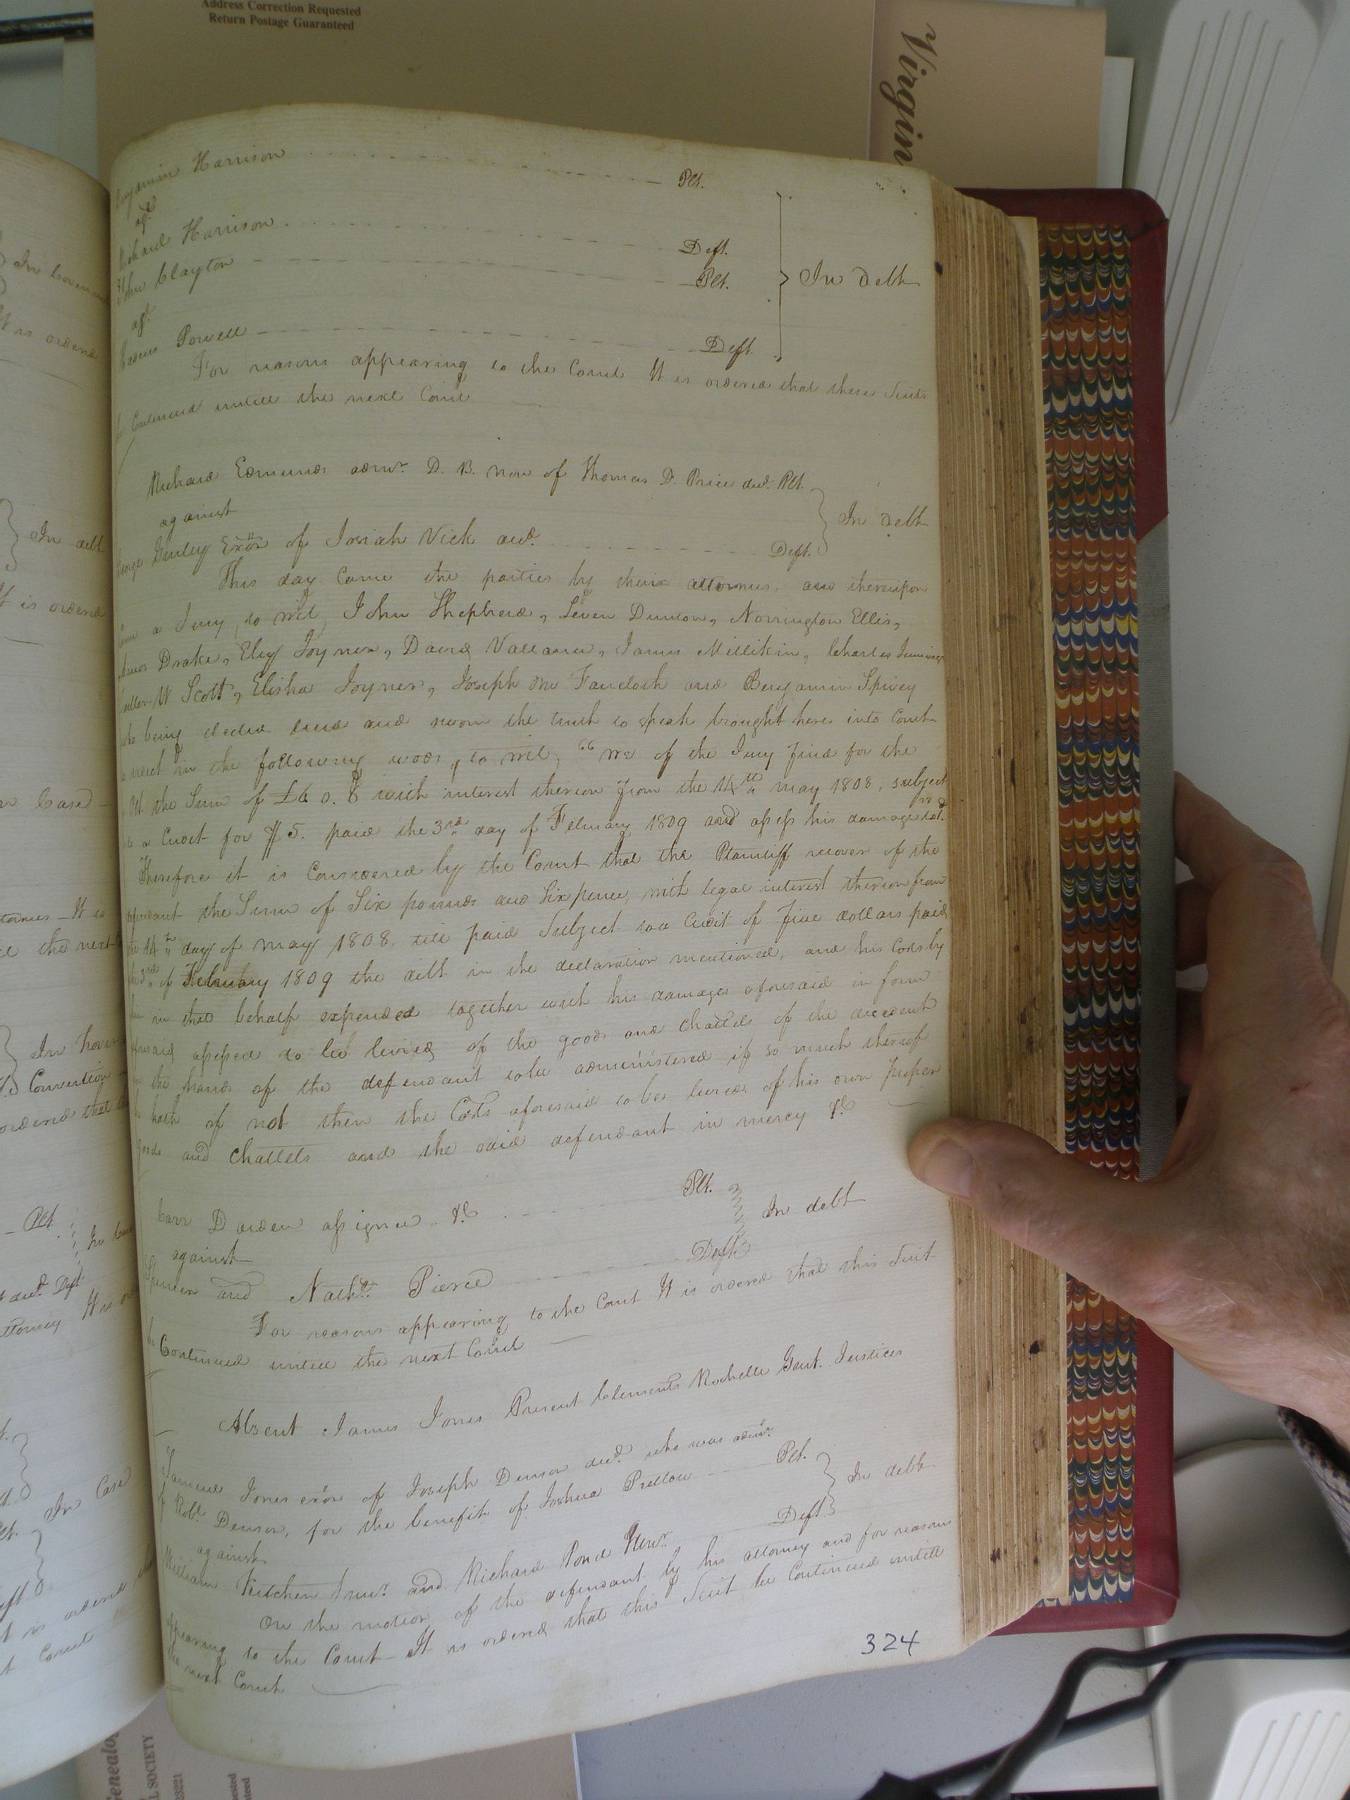 Address Correction Requested
Return Postage Guaranteed
Virgin
Benjamin Harrison Plt.
agt
Richard Harrison Deft.
John Clayton Plt.
agt. In debt
Powell Deft.
For reasons appearing to the Court It is ordered that these Suits
be Continued untill the next Court
Richard Edmunds admr. D. B. non of Thomas D. Price decd. Plt.
against In debt
George Gurley Exor of Josiah Vick decd. Deft.
This day Came the parties by their attornies, and thereupon
Came a Jury, to wit, John Shepherd, Leven Dunton, Norrington Ellis,
Drake, Eley Joyner, David Vallance, James Millikin, Charles Jennings
W Scott, Elisha Joyner, Joseph Mc Fauclosh and Benjamin Spivey
who being elected tried and sworn the truth to speak brought here into Court
a verdict in the following words, to wit, "We of the Jury find for the
Plt the Sum of £6 0. 6 with interest thereon from the 14th may 1808, subject
to a Credit for $5. paid the 3rd day of February 1809 and assess his damage to 1d.
Therefore it is Considered by the Court that the Plaintiff recover of the
defendant the Sum of Six pounds and Sixpence, with legal interest thereon from
the 14th day of may 1808, till paid Subject to a Credit of five dollars paid
the 3rd of February 1809 the debt in the declaration mentioned, and his Costs by
him in that behalf expended together with his damages aforesaid in form
aforesaid assessed to be levied of the goods and chattels of the decedent
in the hands of the defendant to be administered if so much thereof
he hath if not then the Costs aforesaid to be levied of his own proper
goods and Chattels and the said defendant in mercy &c
Carr Darden assignee &c Plt.
against In debt
Spencer and Nathl. Pierce Defts
For reasons appearing to the Court It is ordered that this Suit
be Continued untill the next Court
Absent James Jones Present Clements Rochelle Gent. Justices
Samuel Jones exor of Joseph Denson decd. who was admr.
of Robt. Denson, for the benefit of Joshua Pretlow Plt.
against In debt
William Kitchen Junr. and Richard Pond Deft.
On the motion of the defendant by his attorney and for reasons
appearing to the Court It is ordered that this Suit be Continued untill
the next Court
324
It is ordered
In debt
It is ordered
In Case
the next
Convention
ordered that
Plt.
decd. Deft
attorney
In Case
Genealog
SOCIETY